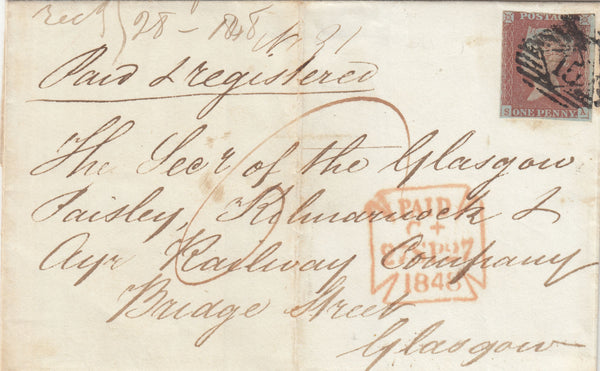 28 - 1848
No 21
Paid & registered
POSTAGE
S A
ONE PENNY
The Secr of the Glasgow
Paisley, Kilmarnock &
Ayr Railway Company
Bridge Street
Glasgow
PAID
1848